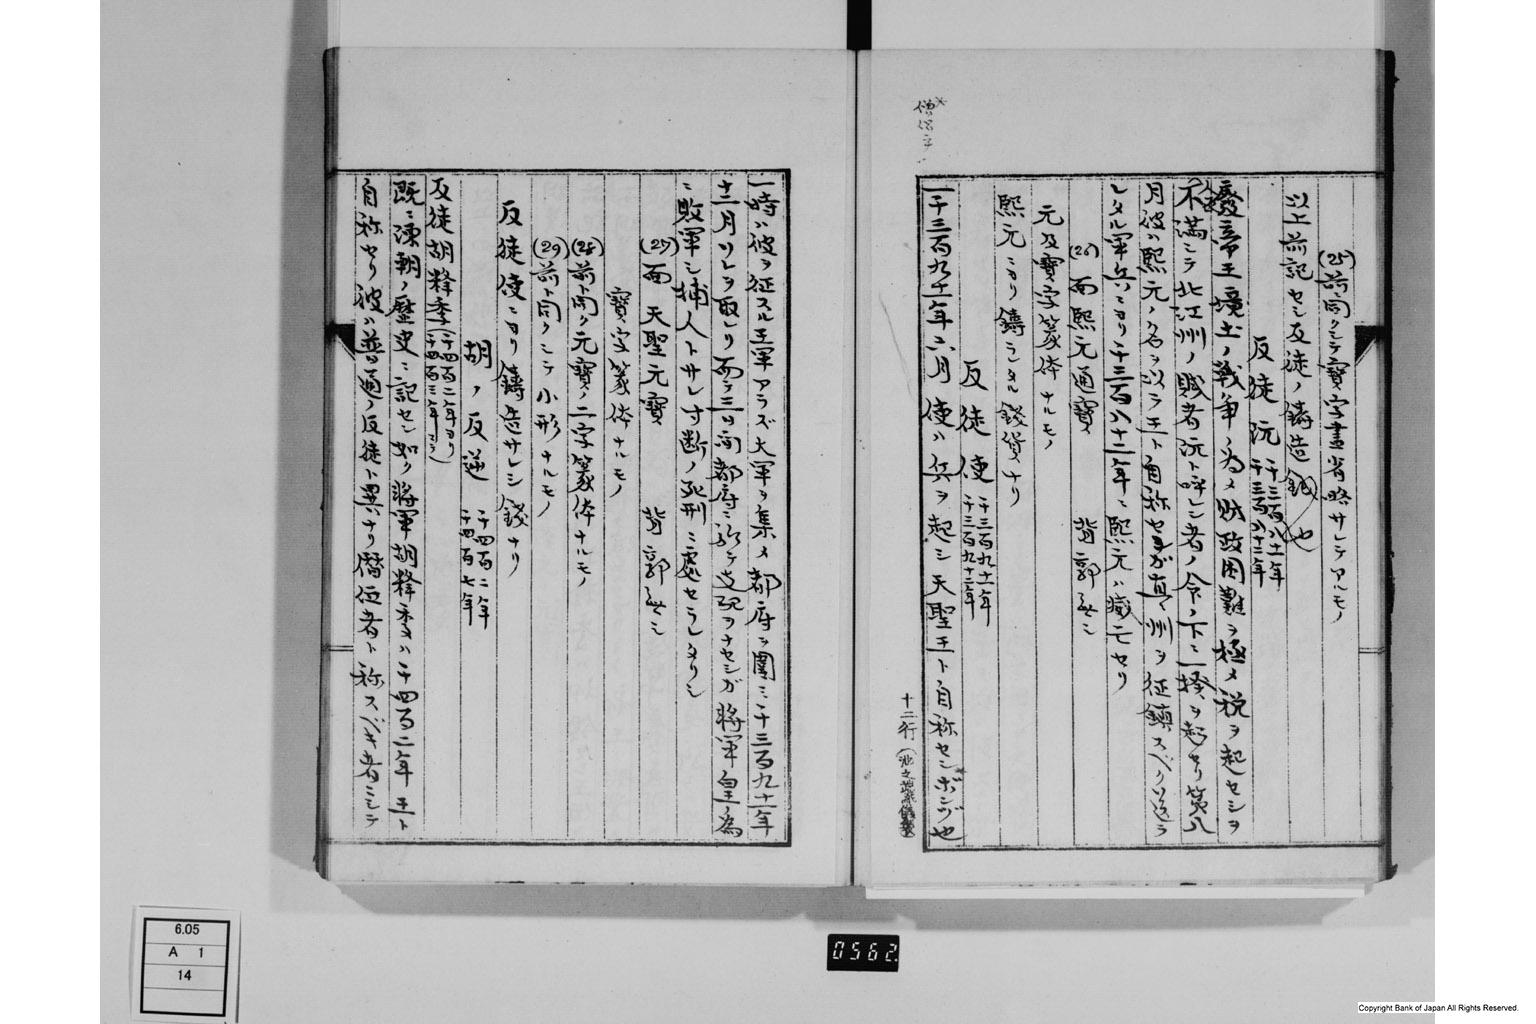 (25)前同クシテ寶字畫省略サレテアルモノ
以上前記セシ反徒ノ鑄造錢也
反徒阮 千三百八十一年 千三百八十二年
廢帝王境土ノ戰争ノ為メ財政困難ヲ極メ税ヲ起セシヲ
不満ニテ北江州ノ賊者阮ト呼シ者ノ令ノ下ニ一揆ヲ起セリ第八
月彼ハ熙元ノ名ヲ以テ王ト自称セシガ直ク州ヲ征鎮スベク送ラ
レタル軍兵ニヨリ千三百八十二年ニ熙元ハ滅亡セリ
(26)面熙元通寶 背郭無シ
元及寶字篆体ナルモノ
熙元ニヨリ鑄ラレタル錢貨ナリ
反徒使 千三百九十一年 千三百九十二年
一千三百九十一年六月使ハ兵ヲ起シ天聖王ト自称センボンヅ也
僧侶
十二行
一時ハ彼ヲ征スル王軍アラズ大軍ヲ集メ都府ヲ圍ミ千三百九十一年
十二月ソレヲ取レリ而テ三日間都府ニ於テ支配ヲナセシガ將軍皇ノ為
ニ敗軍シ捕人トサレ寸断ノ死刑ニ處セラレタリシ
(27)面 天聖元寶 背郭無シ
寶字篆体ナルモノ
(28)前ト同ク元寶ノ二字篆体ナルモノ
(29)前ト同クシテ小形ナルモノ
反徒使ニヨリ鑄造サレシ錢ナリ
胡ノ反逆 千四百二年 千四百七年
反徒胡釋季 千四百二年ヨリ 千四百三年マデ
既ニ凍朝ノ歴史ニ記セシ如ク將軍胡釋季ハ千四百二年王ト
自称セリ彼ハ普通ノ反徒ト異ナリ僭位者ト称スベキ者ニシテ
6.05
A 1
14
0562.
Copyright Bank of Japan All Rights Reserved.